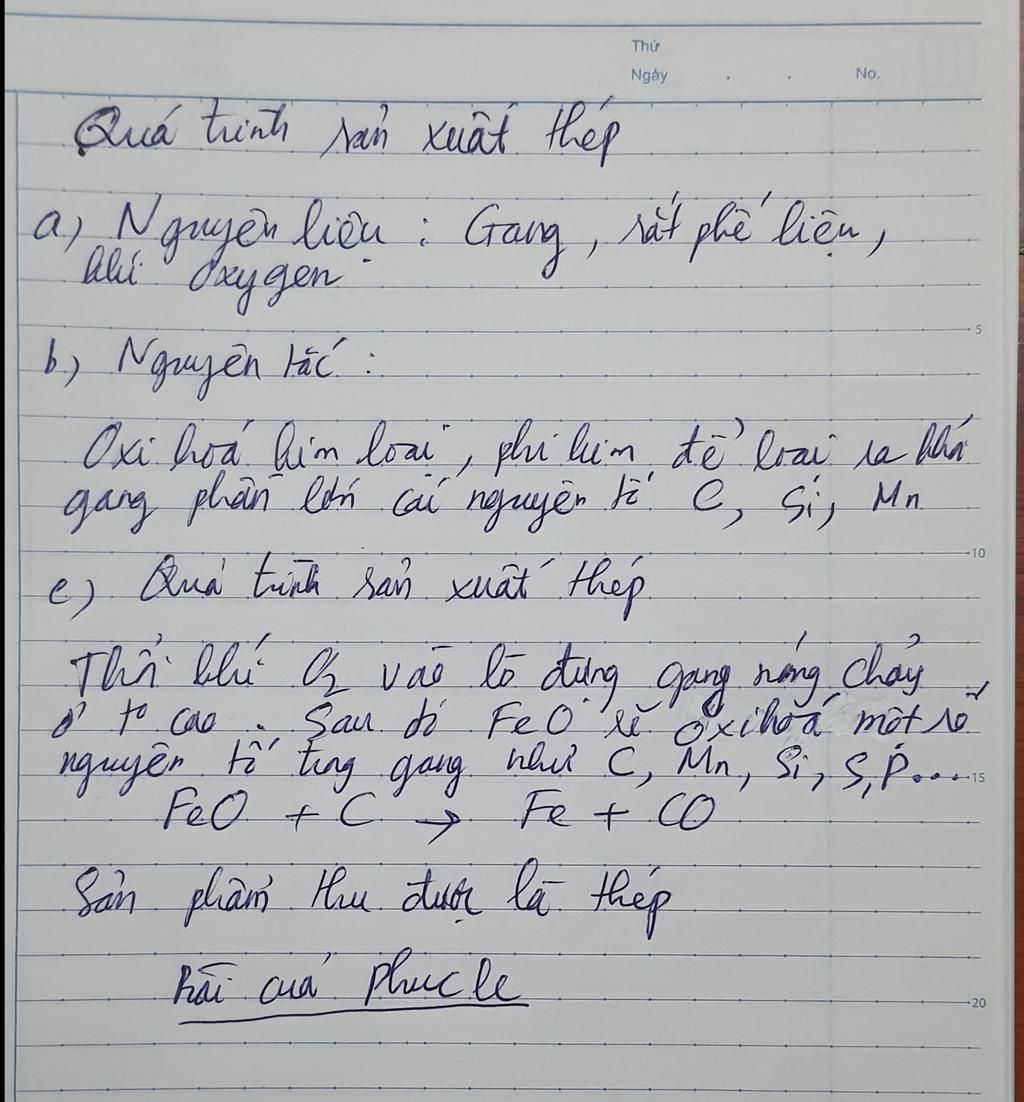 Thứ
Ngày . . No.
Quá trình sản xuất thép
a) Nguyên liệu : Gang, sắt phế liệu,
khí oxygen
5
b) Nguyên tắc :
Oxi hoá kim loại, phi kim để loại ra khỏi
gang phần lớn các nguyên tố C, Si, Mn
10
c) Quá trình sản xuất thép
Thổi khí O2 vào lò đựng gang nóng chảy
ở to cao. Sau đó FeO sẽ oxi hoá một số
nguyên tố trong gang như C, Mn, Si, S, P....
15
FeO + C → Fe + CO
Sản phẩm thu được là thép
Bài của phucle
20